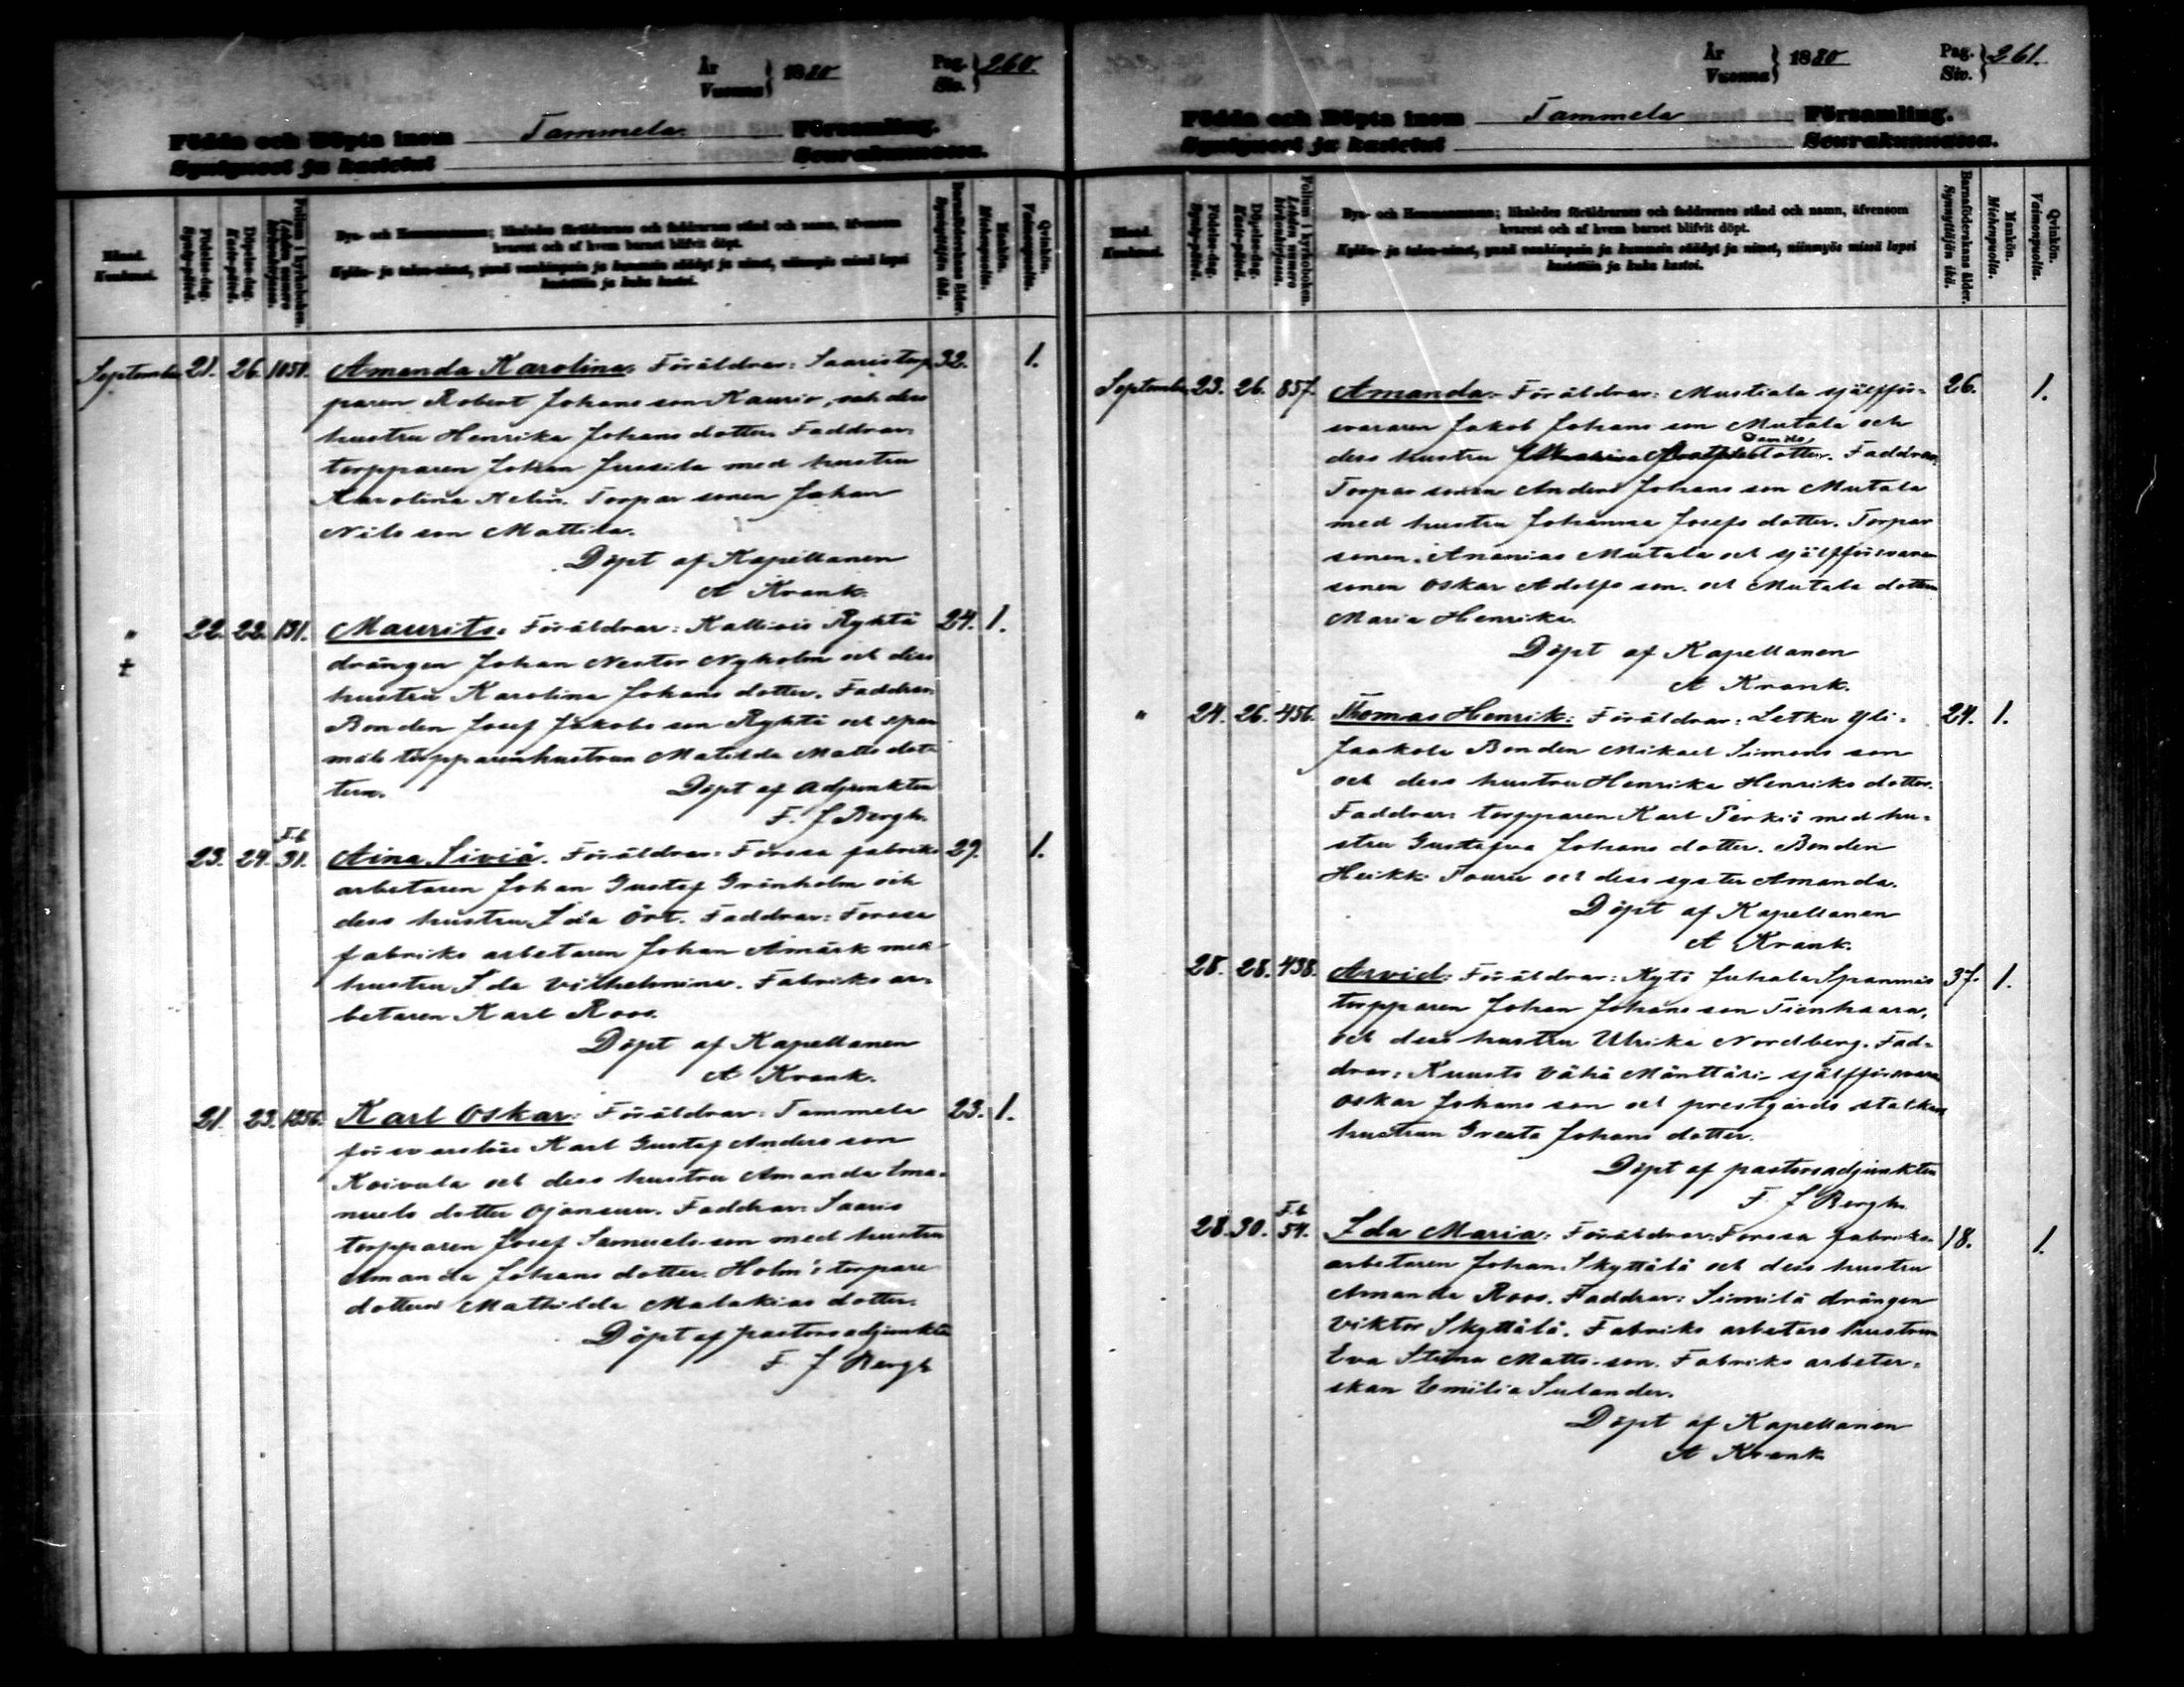 År
Vuonna
1880
Pag.
Siv.
260.
Födda och Döpta inom Tammela Församling.
Syntyneet ja kastetut Seurakunnassa.
Månad.
Kuukausi.
Födelse-dag.
Synty-päivä.
Döpelse-dag.
Kaste-päivä.
Folium i kyrkoboken.
Lehden numero kirkonkirjassa.
Bya- och Hemmansnamn; likaledes föräldrarnes och faddrarnes stånd och namn, äfvensom
hvarest och af hvem barnet blifvit döpt.
Kylän- ja talon-nimet, ynnä vanhimpain ja kummein säädyt ja nimet, niinmyös missä lapsi
kastettiin ja kuka kastoi.
Barnaföderskans ålder.
Synnyttäjän ikä.
Mankön.
Miehenpuolta.
Qvinkön.
Vaimonpuolta.
September 21. 26. 1051. Amanda Karolina. Föräldrar: Saaris torp 32. 1.
paren Robert Johans son Kaurio, och dess
hustru Henrika Johans dotter. Faddrar:
torpparen Johan Jussila med hustru
Karolina Helin. Torpar sonen Johan
Nils son Mattila.
Döpt af Kapellanen
A Krank.
" 22. 22. 131. Maurits. Föräldrar: Kalliois Ryhtä 24. 1.
‡ drängen Johan Nestor Nyholm och dess
hustru Karolina Johans dotter. Faddrar:
Bonden Josef Jakobs son Ryhtä och span
måls torpparenhustrun Matilda Matts dot
tern. Döpt af Adjunkten
F. J Bergh.
F.b
23. 24. 31. Aina Siviä. Föräldrar: Forssa fabriks 29. 1.
arbetaren Johan Gustaf Grönholm och
dess hustru Ida Ört. Faddrar: Forssa
fabriks arbetaren Johan Amärk med
hustru Ida Vilhelmina. Fabriks ar-
betaren Karl Roos.
Döpt af Kapellanen
A Krank.
21. 23. 1256. Karl Oskar: Föräldrar: Tammela 23. 1.
försvarslöse Karl Gustaf Anders son
Koivula och dess hustru Amanda Ema-
nuels dotter Ojansuu. Faddrar: Saaris
torpparen Josef Samuels son med hustru
Amanda Johans dotter. Holm's torpare
dottern Mathilda Malakias dotter.
Döpt af pastorsadjunkten
F. J Bergh
År
Vuonna
1880
Pag.
Siv.
261.
Födda och Döpta inom Tammela Församling.
Syntyneet ja kastetut Seurakunnassa.
Månad.
Kuukausi.
Födelse-dag.
Synty-päivä.
Döpelse-dag.
Kaste-päivä.
Folium i kyrkoboken.
Lehden numero kirkonkirjassa.
Bya- och Hemmansnamn; likaledes föräldrarnes och faddrarnes stånd och namn, äfvensom
hvarest och af hvem barnet blifvit döpt.
Kylän- ja talon-nimet, ynnä vanhimpain ja kummein säädyt ja nimet, niinmyös missä lapsi
kastettiin ja kuka kastoi.
Barnaföderskans ålder.
Synnyttäjän ikä.
Mankön.
Miehenpuolta.
Qvinkön.
Vaimonpuolta.
September 23. 26. 857. Amanda. Föräldrar: Mustiala själfför- 26. 1.
svararen Jakob Johans son Mutala och
dess hustru dotter. Faddrar:
Torpar sonen Anders Johans son Mutala
med hustru Johanna Josefs dotter. Torpar
sonen Ananias Mutala och själfförsvarare
sonen Oskar Adolfs son. och Mutala dottern
Maria Henrika.
Döpt af Kapellanen
A Krank.
" 24. 26. 456. Thomas Henrik: Föräldrar: Letku Yli- 24. 1.
Jaakola Bonden Mikael Simons son
och dess hustru Henrika Henriks dotter.
Faddrar: torpparen Karl Perkiö med hu-
stru Gustafva Johans dotter. Bonden
Heikki Touru och dess syster Amanda.
Döpt af Kapellanen
A Krank.
28. 28. 438. Arvid: Föräldrar: Kytö Juhala Spanmås 37. 1.
torpparen Johan Johans son Tienhaara,
och dess hustru Ulrika Nordberg. Fad-
drar: Kuusto Vähä Mänttäri själfförsvaren
Oskar Johans son och prestgårds statkarl
hustrun Greeta Johans dotter.
Döpt af pastorsadjunkten
F. J Bergh.
F.b
28. 30. 54. Ida Maria: Föräldrar: Forssa fabriks- 18. 1.
arbetaren Johan Skyttälä och dess hustru
Amanda Roos. Faddrar: Simila drängen
Viktor Skyttälä. Fabriks arbetars hustrun
Eva Stina Matts-son. Fabriks arbeter-
skan Emilia Sulander.
Döpt af Kapellanen
A Krank